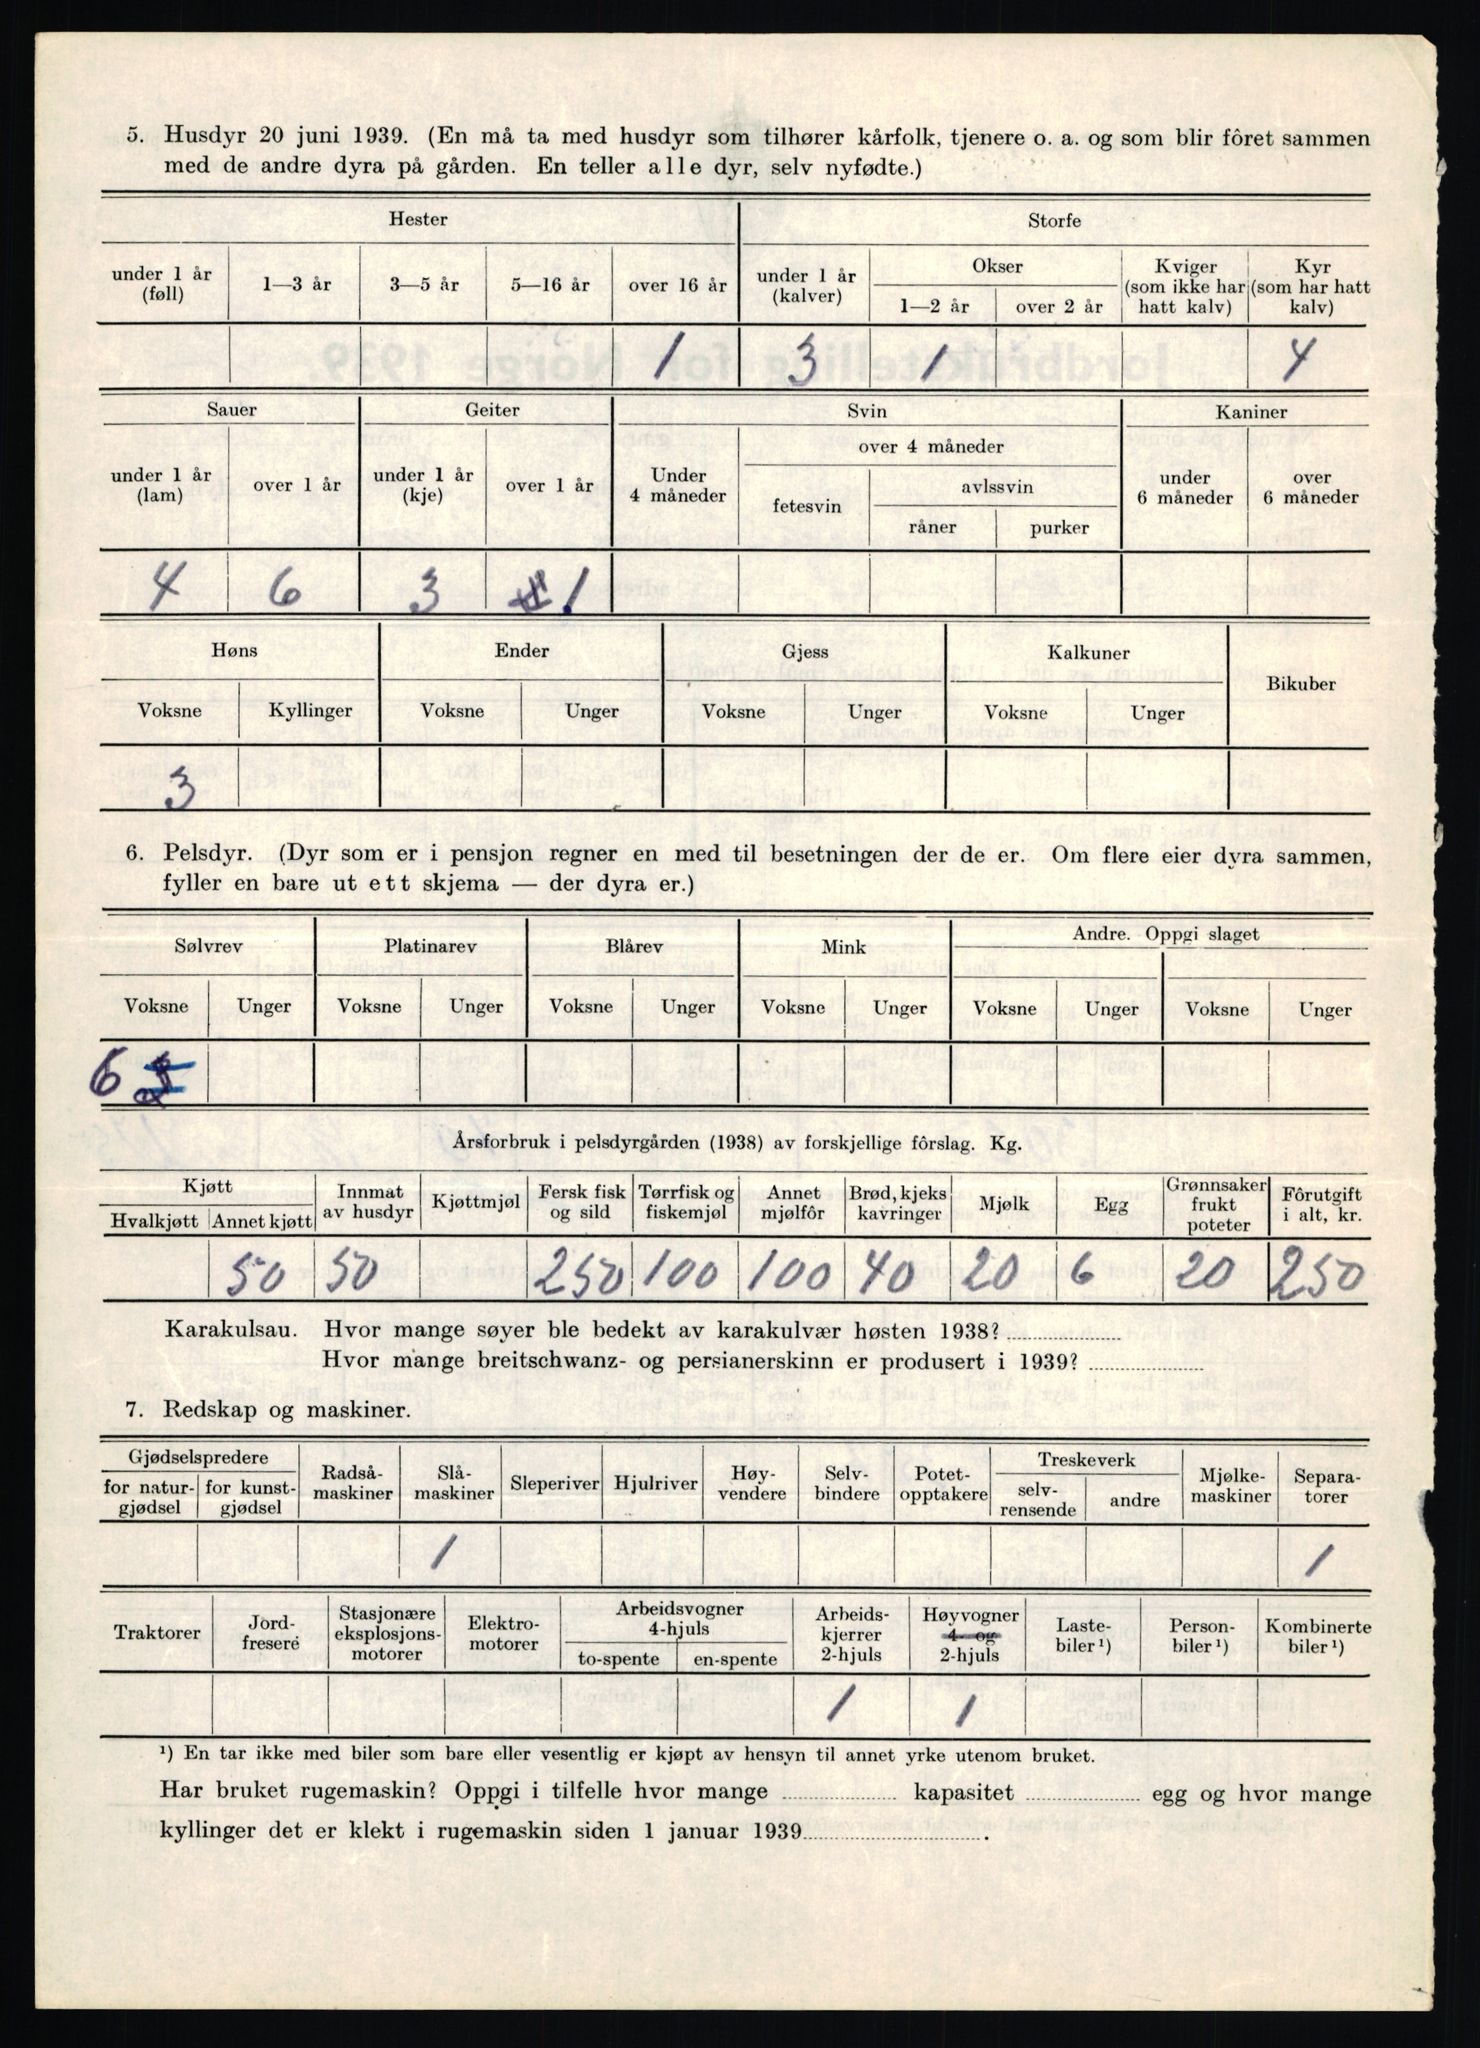 5. Husdyr 20 juni 1939. (En må ta med husdyr som tilhører kårfolk, tjenere o. a. og som blir fôret sammen
med de andre dyra på gården. En teller alle dyr, selv nyfødte.)
Hester Storfe
under 1 år (føll) 1—3 år 3—5 år 5—16 år over 16 år under 1 år (kalver) Okser 1—2 år over 2 år Kviger (som ikke har hatt kalv) Kyr (som har hatt kalv)
1 3 1 4
Sauer Geiter Svin Kaniner
under 1 år (lam) over 1 år under 1 år (kje) over 1 år Under 4 måneder over 4 måneder fetesvin avlssvin råner purker under 6 måneder over 6 måneder
4 6 3 1
Høns Ender Gjess Kalkuner Bikuber
Voksne Kyllinger Voksne Unger Voksne Unger Voksne Unger
3
6. Pelsdyr. (Dyr som er i pensjon regner en med til besetningen der de er. Om flere eier dyra sammen,
fyller en bare ut ett skjema — der dyra er.)
Sølvrev Platinarev Blårev Mink Andre. Oppgi slaget
Voksne Unger Voksne Unger Voksne Unger Voksne Unger Voksne Unger Voksne Unger
6
Årsforbruk i pelsdyrgården (1938) av forskjellige fôrslag. Kg.
Kjøtt Hvalkjøtt Annet kjøtt Innmat av husdyr Kjøttmjøl Fersk fisk og sild Tørrfisk og fiskemjøl Annet mjølfôr Brød, kjeks kavringer Mjølk Egg Grønnsaker frukt poteter Fôrutgift i alt, kr.
50 50 250 100 100 40 20 6 20 250
Karakulsau. Hvor mange søyer ble bedekt av karakulvær høsten 1938?
Hvor mange breitschwanz- og persianerskinn er produsert i 1939?
7. Redskap og maskiner.
Gjødselspredere for natur- gjødsel for kunst- gjødsel Radså- maskiner Slå- maskiner Sleperiver Hjulriver Høy- vendere Selv- bindere Potet- opptakere Treskeverk selv- rensende andre Mjølke- maskiner Separa- torer
1 1
Traktorer Jord- fresere Stasjonære eksplosjons- motorer Elektro- motorer Arbeidsvogner 4-hjuls to-spente en-spente Arbeids- kjerrer 2-hjuls Høyvogner 4- og 2-hjuls Laste- biler ¹) Person- biler ¹) Kombinerte biler ¹)
1 1
¹) En tar ikke med biler som bare eller vesentlig er kjøpt av hensyn til annet yrke utenom bruket.
Har bruket rugemaskin? Oppgi i tilfelle hvor mange kapasitet egg og hvor mange
kyllinger det er klekt i rugemaskin siden 1 januar 1939 .